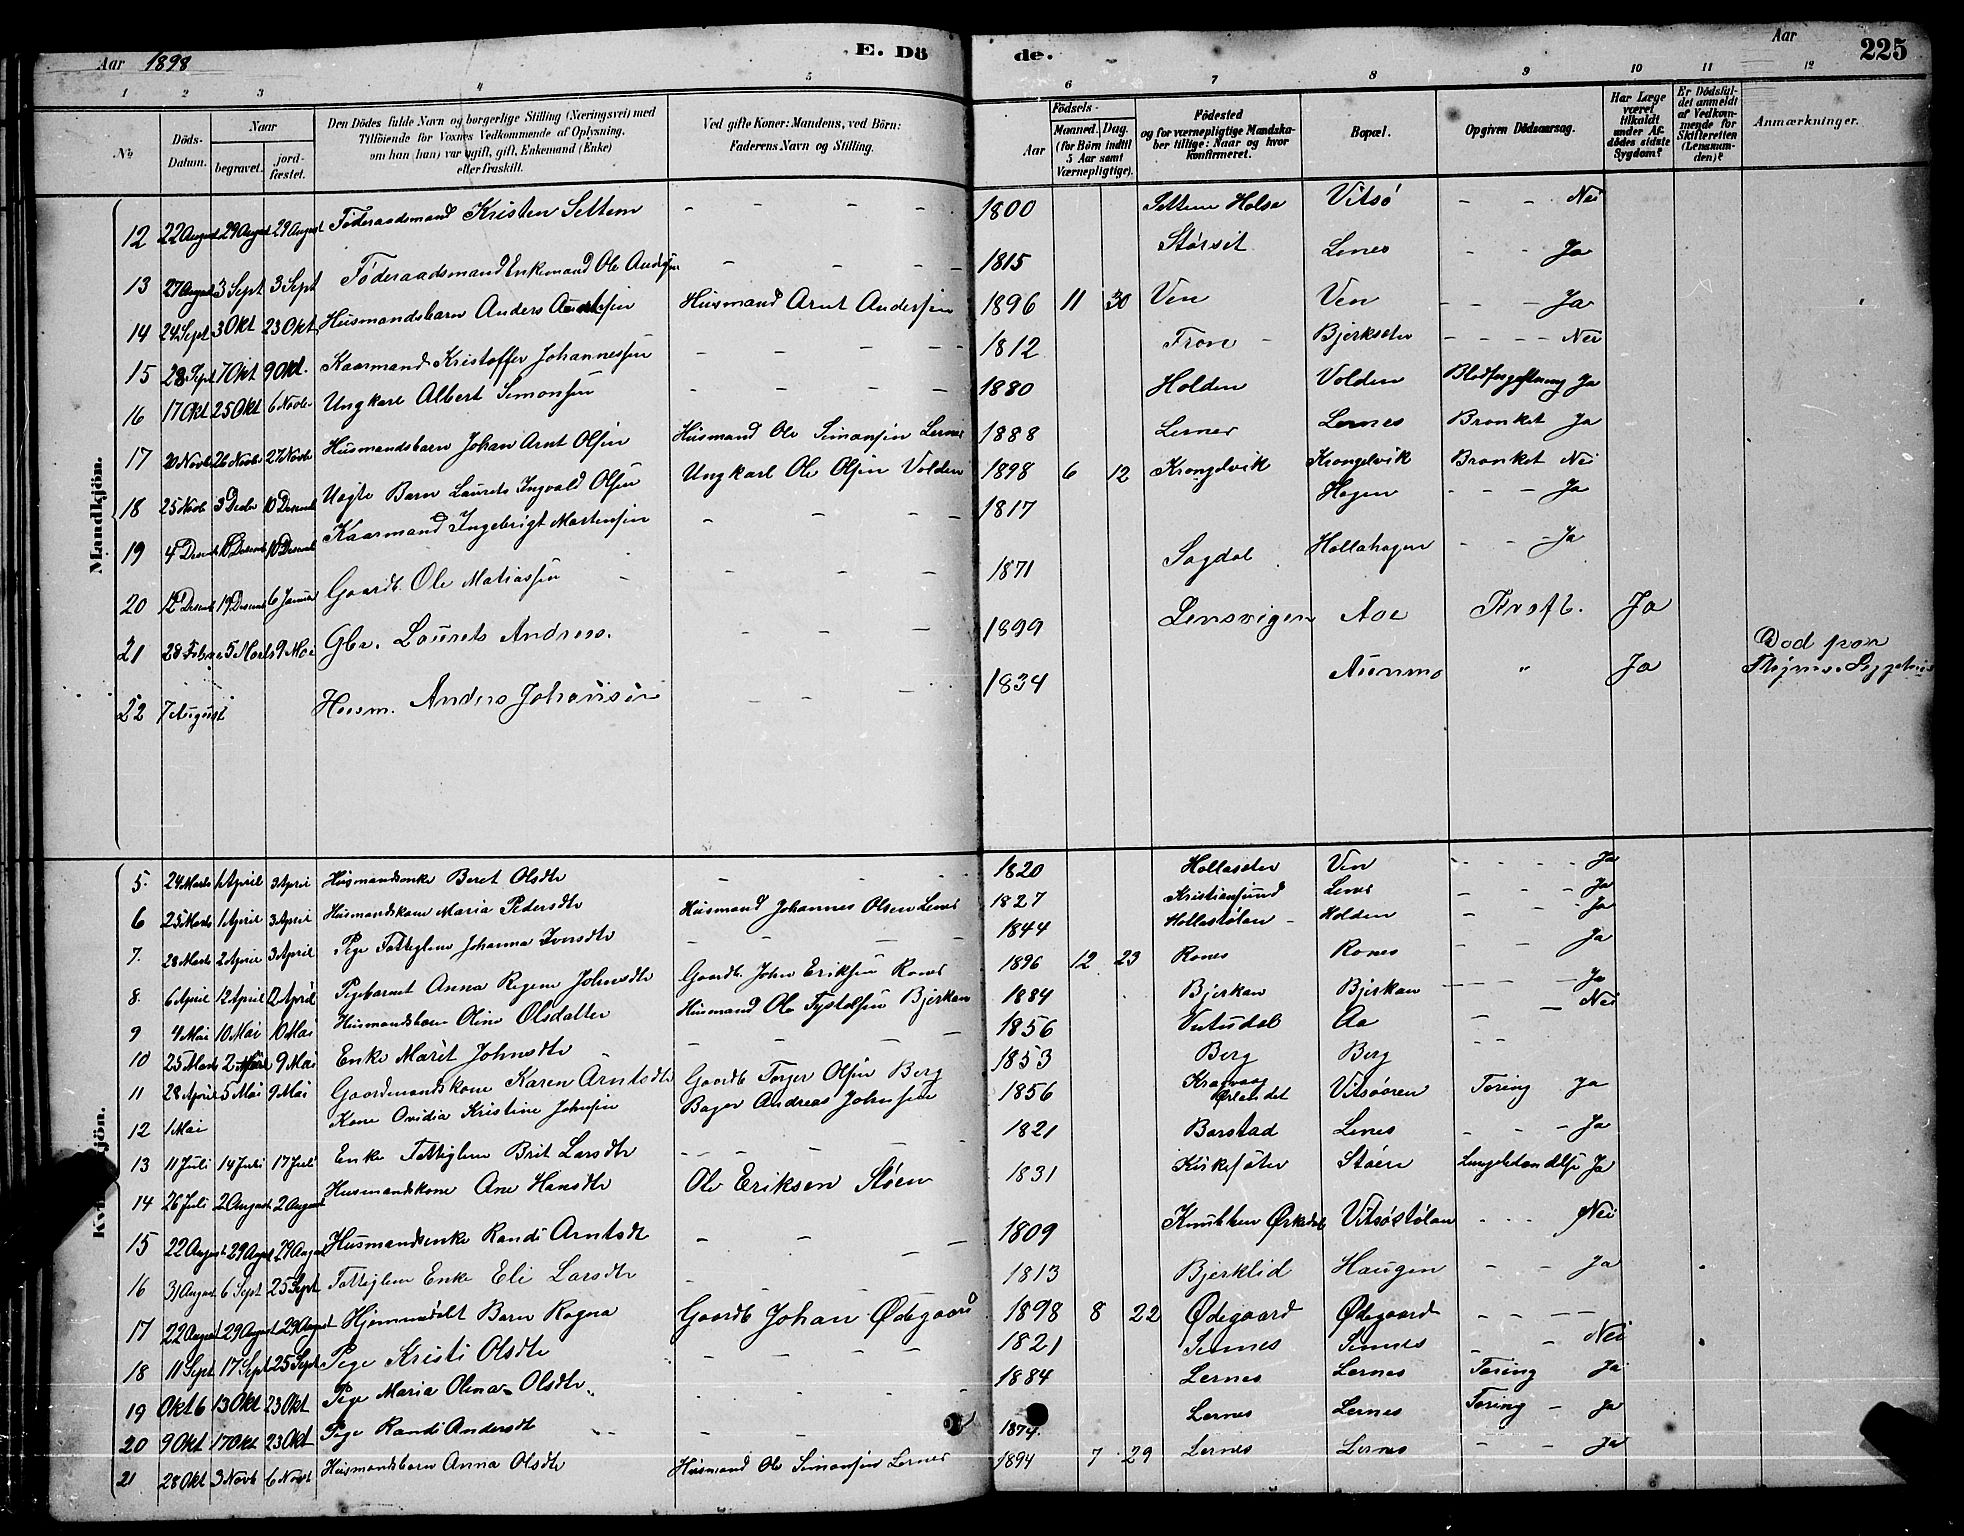 Aar 1898 E. Dö de. Aar 225
1 2 3 4 5 6 7 8 9 10 11 12
No Döds-Datum. Naar begravet. jordfæstet. Den Dödes fulde Navn og borgerlige Stilling (Næringsvei) med Tilföiende for Voxnes Vedkommende af Oplysning, om han (hun) var ugift, gift, Enkemand (Enke) eller fraskilt. Ved gifte Koner: Mandens, ved Börn: Faderens Navn og Stilling. Födsels- Aar Maaned. Dag. (for Börn indtil 5 Aar samt Værnepligtige). Födested og for værnepligtige Mandskaber tillige: Naar og hvor konfirmeret. Bopæl. Opgiven Dödsaarsag. Har Læge været tilkaldt under Afdödes sidste Sygdom? Er Dödsfaldet anmeldt af Vedkommende for Skifteretten (Lensmanden)? Anmærkninger.
Mandkjön.
12 22 August 29 August 29 August Føderaadsmand Kristen Settem - - - - 1800 Settem Halsa Vitsø - - Nei
13 27 August 3 Sept 3 Sept Føderaadsmand Enkemand Ole Andersen - - - - 1815 Størset Lenes - - Ja
14 24 Sept 3 Okt 23 Okt Husmandsbarn Anders Arntsen Husmand Arnt Andersen 1896 11 30 Ven Ven - - - Ja
15 28 Sept 7 Okt 9 Okt. Kaarmand Kristoffer Johannessen - - - - 1812 Fron - Bjerkseter - - - - Nei
16 17 Okt 25 Okt 6 Novbr Ungkarl Albert Simonsen - - - - 1880 Holden Volden Blodforgiftning Ja
17 20 Novbr 26 Novbr 27 Novbr Husmandsbarn Johan Arnt Olsen Husmand Ole Simonsen Lernes 1888 Lernes Lernes Bronket Ja
18 25 Novb 3 Decbr 10 Desemb Uægte Barn Laurets Ingvald Olsen Ungkarl Ole Olsen Volden 1898 6 12 Krongelvik Krongelvik Bronket Nei
19 4 Desemb 10 Desemb 10 Desemb Kaarmand Ingebrigt Martensen - - - - 1817 Hagen - - - Ja
20 12 Desemb 19 Desemb 6 Januar Gaardb. Ole Matiassen - - - - 1871 Sagdal Hollahagen - - - Ja
21 28 Febr 5 Marts 9 Mai Gbr. Laurets Andress. - - - 1899 Lensvigen Aae Ja
22 7 August Husm. Anders Johansen - - - 1834 Aunmo " Ja Død paa
5. 24 Marts 1 April 3 April Husmandsenke Beret Olsdtr - - - - 1820 Hollaseter Ven - - - - Ja
6 25 Marts 1 April 3 April Husmandskone Maria Pedersdtr Husmand Johannes Olsen Lenes 1827 Kristiansund Lenes - - - Ja
7. 28 Marts 2 April 3 April Pige Fattiglem Johanna Iversdtr - - - - 1844 Hollastølan - Holden - - Ja
8. 6 April 12 April 12 April Pigebarnet Anna Regine Johnsdtr Gaardb. John Eriksen Rones 1896 12 23 Rones Rones - - Ja
9 4 Mai 10 Mai 10 Mai Husmandsbarn Oline Olsdatter Husmand Ole Bjerkan 1884 Bjerkan Bjerkan - - - - Ja
10 25 Marts 2 April 9 Mai Enke Marit Johnsdtr - - - - 1856 Aa - - Nei
11 28 April 5 Mai 9 Mai Gaardmandskone Karen Arntsdtr Gaardb Torger Olsen Berg 1853 Berg Berg - -
12 1 Mai Kone Ovidia Kristine Johnsen Bager Andreas Johnsen 1856 Ørlandet Vitsøøren Tæring Ja
13 11 Juli 14 Juli 17 Juli Enke Fattiglem Brit Larsdtr - - - - 1821 Barstad Lenes - - - Ja
14 26 Juli 2 August 2 August Husmandskone Ane Hansdtr Ole Eriksen Støen 1831 Kirkesæter Støen Ja
15 22 August 29 August 29 August Husmandsenke Randi Arntsdtr - - - 1809 Orkedal Vitsøstølan - - - Nei
16 31 August 6 Sept 25 Sept Fattiglem Enke Eli Larsdtr - - - 1813 Bjerklid Haugen - - - Ja
17 22 August 29 August 29 August Hjemmedøbt Barn Ragna Gaardb Johan Ødegaard 1898 8 22 Ødegaard Ødegaard - - - -
18 11 Sept 17 Sept 25 Sept Pige Kristi Olsdtr - - - - 1821 Sinnes Sinnes - - Nei
19 Okt 6 13 Okt 23 Okt Pige Maria Olina Olsdtr - - - - 1884 Lernes Lernes Tæring Ja
20 9 Okt 17 Okt 23 Okt Pige Randi Andersdtr - - - 1874. Lernes Lernes Tæring - Ja
21 28 Okt 3 Novb 6 Novb Husmandsbarn Anna Olsdtr Husmand Ole Simonsen Lernes 1894 7 29 Lernes Lernes - - Ja